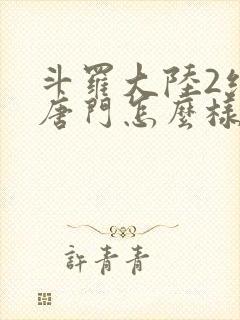 斗羅大陸2絕
唐門怎麼樣
許青青